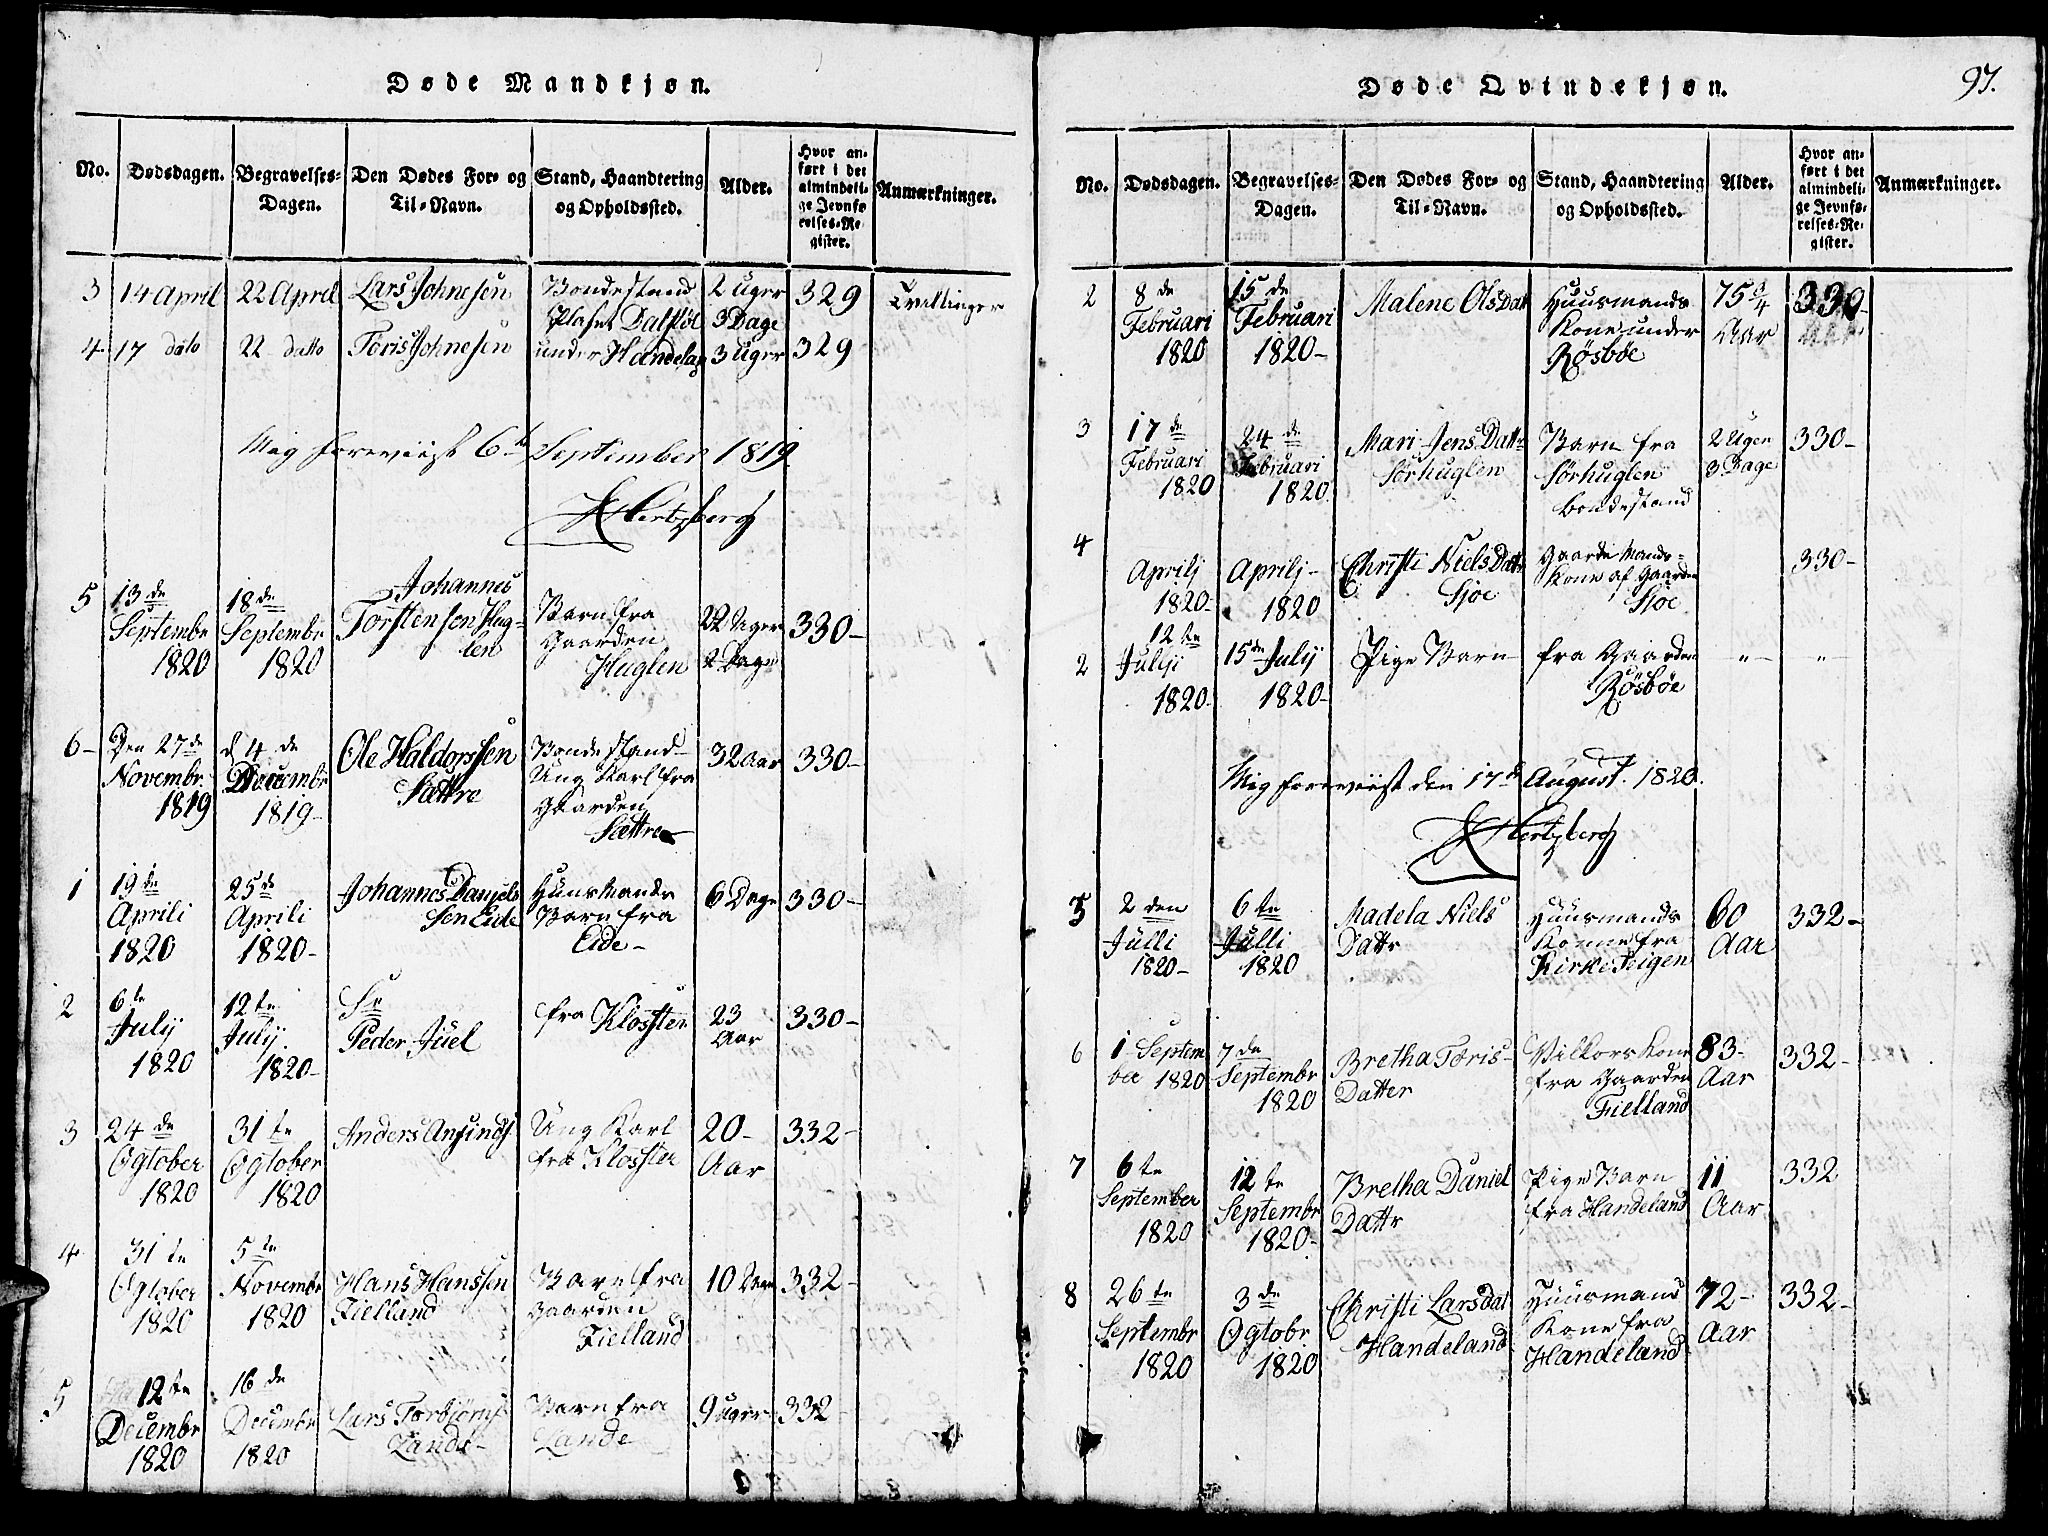 Døde Mandkjøn.
No. Dødsdagen. Begravelses-Dagen. Den Dødes For- og Til-Navn. Stand, Haandtering og Opholdssted. Alder. Hvor anført i det almindelige Jevnførelses-Register. Anmærkninger.
3 14 April 22 April Lars Johnesen Bondestand 2 Uger 329 Tvillinger
Pladset 3 Dage
4 17 dato 22 datto Toris Johnesen under 3 Uger 329
Mig foreviist 6te September 1819.
Hertzberg
5 13de September 1820 18de Septembr 1820 Johannes Torstensen Huglen Barn fra Gaarden Huglen 22 Uger 2 Dage 330-
6- Den 27de Novembr. 1819 d 4de Decembr 1819- Ole Haldorssen Sættre Bondestand Ung Karl fra Gaarden Sættre 32 Aar 330-
1 19de Aprili 1820 25de Aprili 1820- Johannes Danielssen Eide Huusmands Barn fra Eide- 6 Dage 330-
2 6te July 1820 12te July. 1820- Sr Peder Juel fra Klosster 23 Aar 330-
3 24de Ogtober 1820 31te Ogtober 1820 Anders Ung Karl fra Klosster 20- Aar 332-
4 31te Ogtober 1820 5te Novembr 1820 Hans Hanssen Fielland Barn fra Gaarden Fielland 10 332-
5 12te Decembr 1820 16de Decembr 1820 Lars Torbjørns Lande- Barn fra Lande 9 Uger 332-
Døde Qvindekjøn.
97.
No. Dødsdagen. Begravelses-Dagen. Den Dødes For- og Til-Navn. Stand, Haandtering og Opholdssted. Alder. Hvor anført i det almindelige Jevnførelses-Register. Anmærkninger.
2 8de Februari 1820 15de Februari 1820- Malene Olsdat Huusmands Kone under Røsbøe 75 3/4 Aar 330-
3 17de Februari 1820 24de Februari 1820. Mari Jens Dattr Sørhuglen Barn fra Sørhuglen bondestand 2 Uger 3 Dage 330-
4 Aprilj 1820- Aprilj- 1820 Christi Niels Dattr Sjoe Gaardmands-Kone af Gaarden Sjoe 330-
2 12te Julyi 1820- 15de July 1820- Pige Barn fra Gaarden Røsbøe - " - "
Mig foreviist den 17de August. 1820.
Hertzberg
5 2den Julli 1820- 6te Julli 1820 Madela Niels Dattr Huusmands Konne fra KirkeTeigen 60 Aar 332-
6 1 September 1820 7de Septembr 1820 Bretha Toris-Datter Vilkors Kone fra Gaarden Fielland 83- Aar 332-
7 6te September 1820 12te Septembr 1820- Bretha Daniel Dattr Pige Barn fra Handeland 11 Aar 332
8 26te Septembr 1820 3de Ogtobr 1820 Christi Larsdat Handeland Huusmands Kone fra Handeland 72- Aar 332-